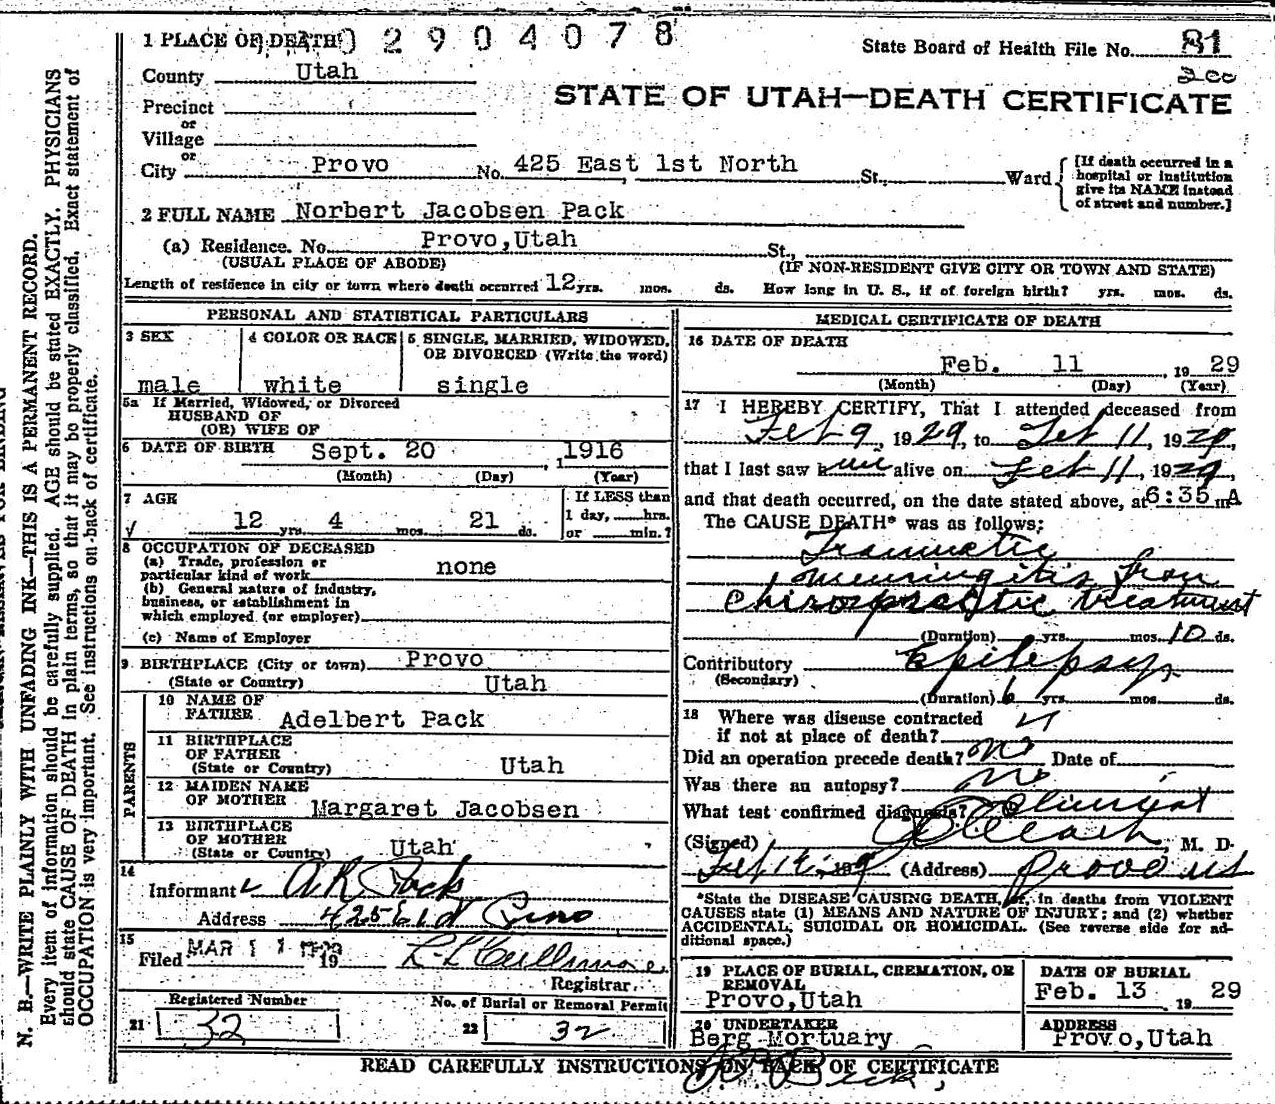 1 PLACE OF DEATH 0 2 9 0 4 0 7 8
State Board of Health File No. 81
200
County Utah
STATE OF UTAH—DEATH CERTIFICATE
Precinct
or
Village
or
City Provo No. 425 East 1st North St., Ward
[If death occurred in a
hospital or institution
give its NAME instead
of street and number.]
2 FULL NAME Norbert Jacobsen Pack
(a) Residence. No. Provo, Utah St.,
(USUAL PLACE OF ABODE) (IF NON-RESIDENT GIVE CITY OR TOWN AND STATE)
Length of residence in city or town where death occurred 12 yrs. mos. ds. How long in U. S., if of foreign birth? yrs. mos. ds.
PERSONAL AND STATISTICAL PARTICULARS
3 SEX
male
4 COLOR OR RACE
white
5 SINGLE, MARRIED, WIDOWED,
OR DIVORCED (Write the word)
single
5a If Married, Widowed, or Divorced
HUSBAND OF
(OR) WIFE OF
6 DATE OF BIRTH Sept. 20, 1916
(Month) (Day) (Year)
7 AGE
12 yrs. 4 mos. 21 ds.
If LESS than
1 day, hrs.
or min.?
8 OCCUPATION OF DECEASED
(a) Trade, profession or
particular kind of work none
(b) General nature of industry,
business, or establishment in
which employed (or employer)
(c) Name of Employer
9 BIRTHPLACE (City or town) Provo
(State or Country) Utah
PARENTS
10 NAME OF
FATHER Adelbert Pack
11 BIRTHPLACE
OF FATHER
(State or Country) Utah
12 MAIDEN NAME
OF MOTHER Margaret Jacobsen
13 BIRTHPLACE
OF MOTHER
(State or Country) Utah
14
Informant A R Pack
Address 425 E 1 N Provo
15
Filed MAR 1 1929 19
Registrar.
Registered Number
21 32
No. of Burial or Removal Permit
22 32
MEDICAL CERTIFICATE OF DEATH
16 DATE OF DEATH
Feb. 11, 1929
(Month) (Day) (Year)
17 I HEREBY CERTIFY, That I attended deceased from
Feb 9, 1929, to Feb 11, 1929,
that I last saw him alive on Feb 11, 1929,
and that death occurred, on the date stated above, at 6:35 m A
The CAUSE DEATH* was as follows:
Traumatic
meningitis from
chiropractic treatment
(Duration) yrs. mos. 10 ds.
Contributory Epilepsy
(Secondary)
(Duration) 6 yrs. mos. ds.
18 Where was disease contracted
if not at place of death?
Did an operation precede death? no Date of
Was there an autopsy? no
What test confirmed diagnosis? Clinical
(Signed) , M. D.
Feb 1929 (Address) Provo Ut
*State the DISEASE CAUSING DEATH, or, in deaths from VIOLENT
CAUSES state (1) MEANS AND NATURE OF INJURY; and (2) whether
ACCIDENTAL, SUICIDAL OR HOMICIDAL. (See reverse side for ad-
ditional space.)
19 PLACE OF BURIAL, CREMATION, OR
REMOVAL
Provo, Utah
DATE OF BURIAL
Feb. 13, 1929
20 UNDERTAKER
Berg Mortuary
ADDRESS
Provo, Utah
READ CAREFULLY INSTRUCTIONS ON BACK OF CERTIFICATE
N. B.—WRITE PLAINLY WITH UNFADING INK—THIS IS A PERMANENT RECORD.
Every item of information should be carefully supplied. AGE should be stated EXACTLY. PHYSICIANS
should state CAUSE OF DEATH in plain terms, so that it may be properly classified. Exact statement of
OCCUPATION is very important. See instructions on back of certificate.